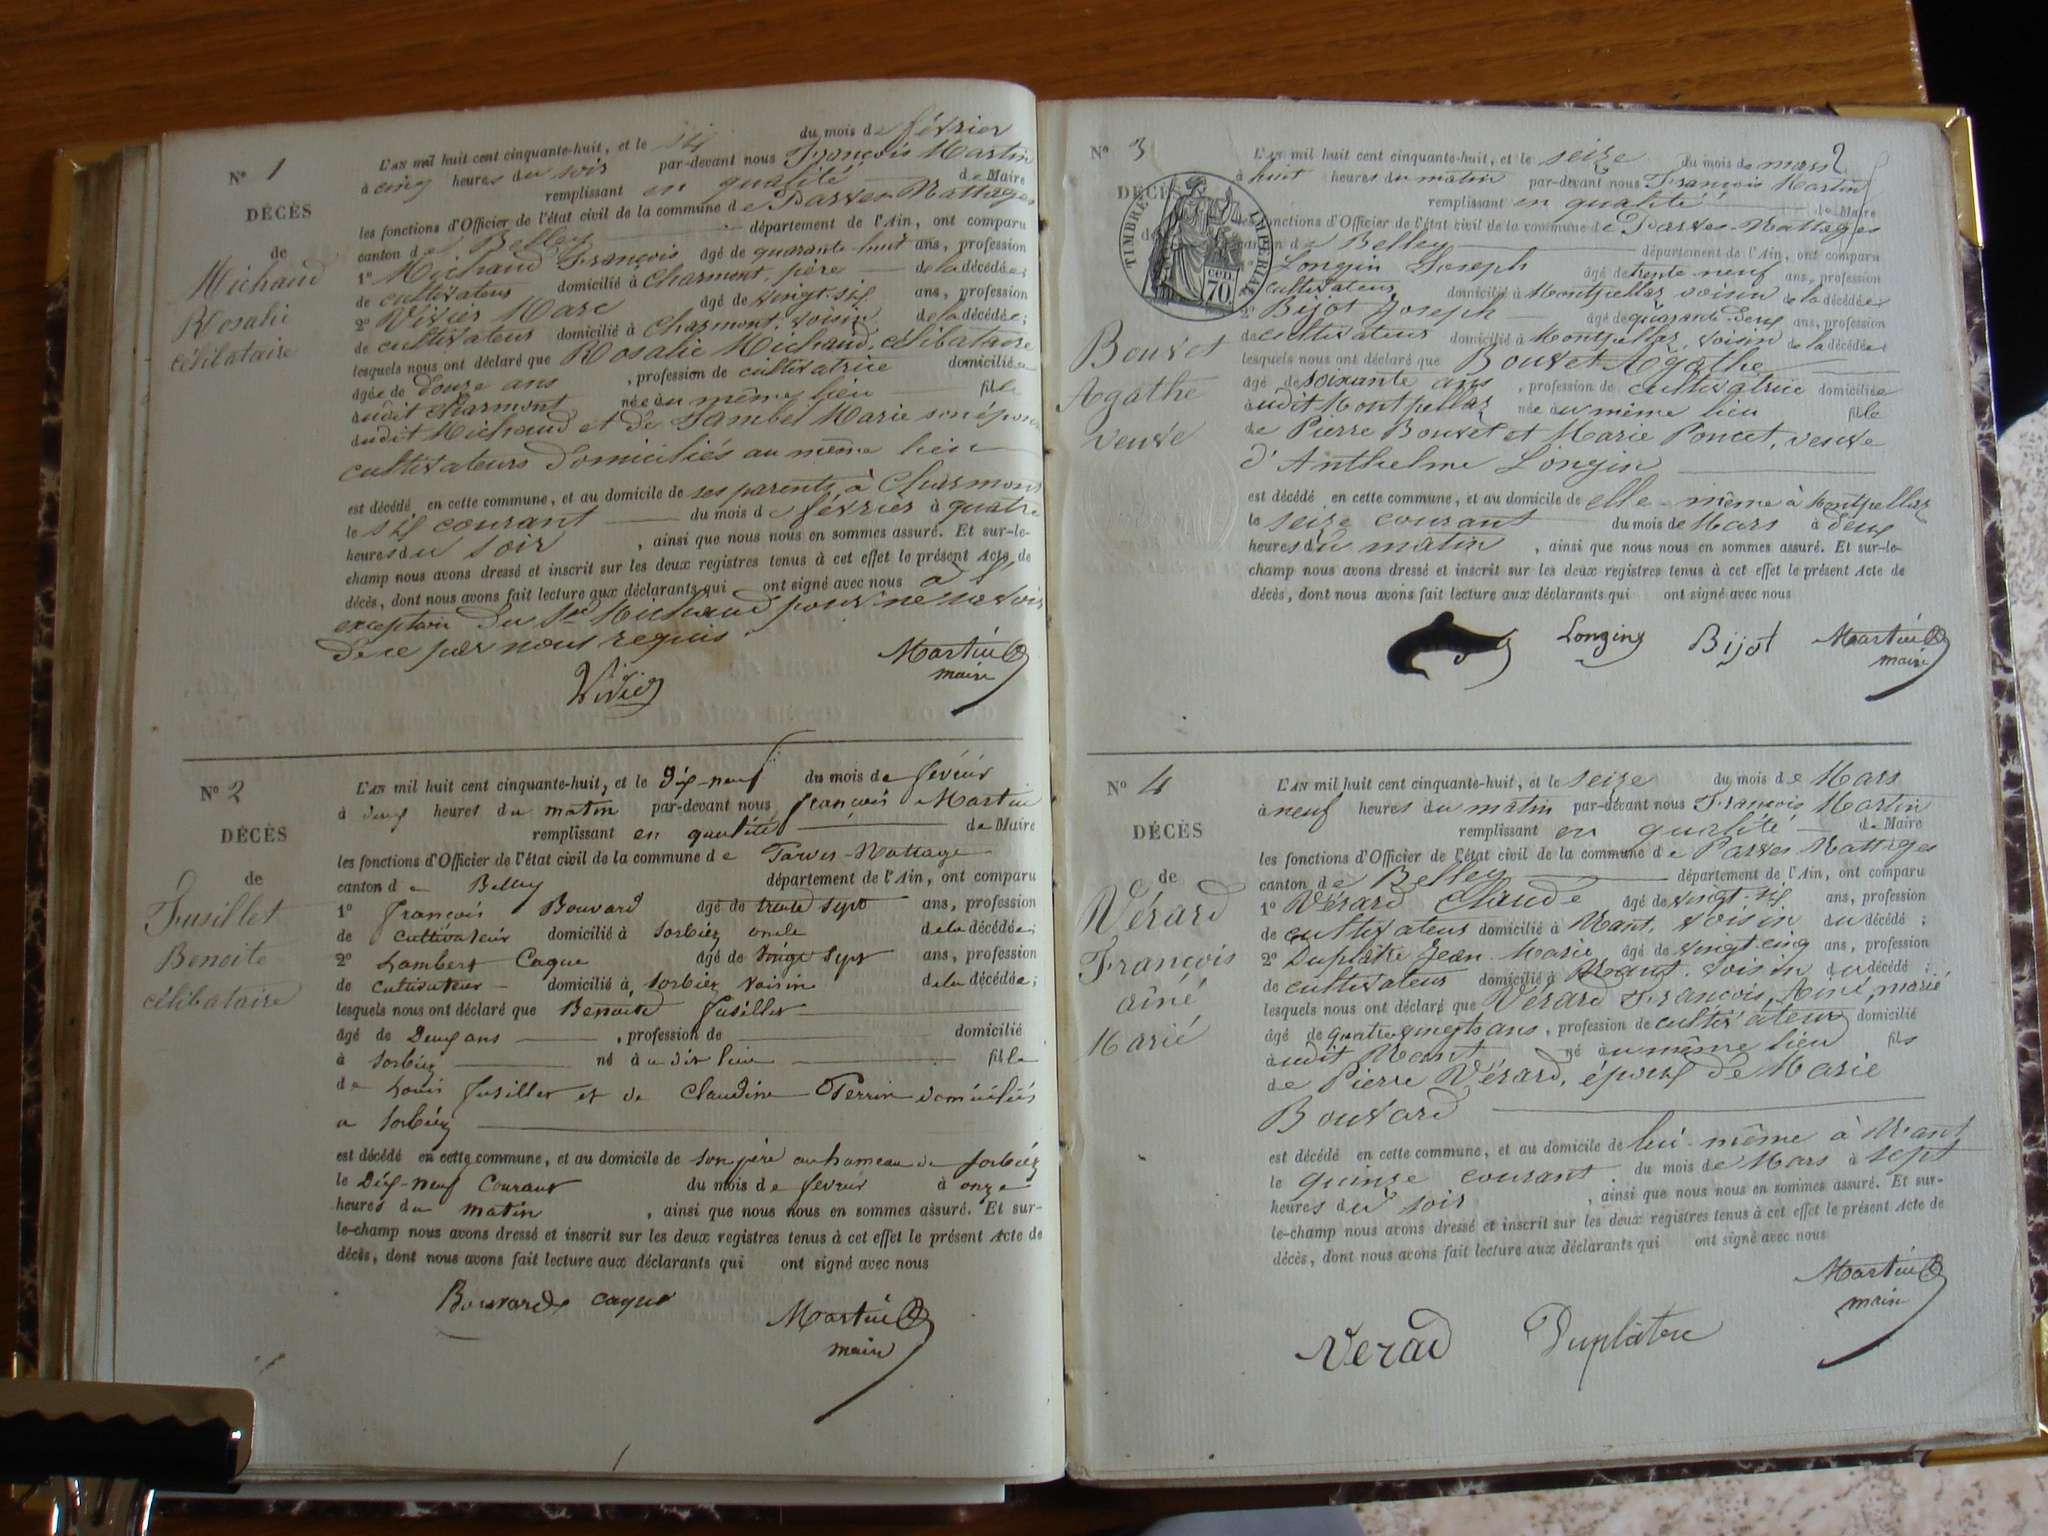 N° 1
DÉCÈS
de
Michaud
Rosalie
célibataire
L'AN mil huit cent cinquante-huit, et le six du mois de février
à cinq heures du soir par-devant nous François Martin
remplissant en qualité de Maire
les fonctions d'Officier de l'état civil de la commune de Parves-Nattages
canton de Belley département de l'Ain, ont comparu
1° Michaud François âgé de quarante-huit ans, profession
de cultivateur domicilié à Charmont, père de la décédée;
2° Vivier Marc âgé de vingt-six ans, profession
de cultivateur domicilié à Charmont, voisin de la décédée;
lesquels nous ont déclaré que Rosalie Michaud, célibataire
âgée de douze ans, profession de cultivatrice domiciliée
audit Charmont née au même lieu fille
dudit Michaud et de Jambel Marie son épouse
cultivateurs domiciliés au même lieu
est décédé en cette commune, et au domicile de ses parents à Charmont
le six courant du mois de février à quatre
heures du soir, ainsi que nous nous en sommes assuré. Et sur-le-
champ nous avons dressé et inscrit sur les deux registres tenus à cet effet le présent Acte de
décès, dont nous avons fait lecture aux déclarants qui ont signé avec nous à l'
exception du Sr Michaud pour ne savoir
de ce par nous requis
Vivier Martin
maire
N° 2
DÉCÈS
de
Fusillet
Benoite
célibataire
L'AN mil huit cent cinquante-huit, et le Dix-neuf du mois de février
à deux heures du matin par-devant nous françois Martin
remplissant en qualité de Maire
les fonctions d'Officier de l'état civil de la commune de Parves-Nattage
canton de Belley département de l'Ain, ont comparu
1° françois Bouvard âgé de trente sept ans, profession
de cultivateur domicilié à Sorbiez oncle de la décédée;
2° Lambert Caque âgé de vingt sept ans, profession
de cultivateur domicilié à Sorbiez voisin de la décédée;
lesquels nous ont déclaré que Benoite fusillet
âgé de Deux ans, profession de domicilié
à Sorbiez né à u dit lieu fille
de Louis fusillet et de Claudine Perrin domiciliés
a Sorbiez
est décédé en cette commune, et au domicile de son père au hameau de Sorbiez
le Dix-neuf Courant du mois de fevrier à onze
heures du matin, ainsi que nous nous en sommes assuré. Et sur-
le-champ nous avons dressé et inscrit sur les deux registres tenus à cet effet le présent Acte de
décès, dont nous avons fait lecture aux déclarants qui ont signé avec nous
Bouvard caque Martin
maire
2
N° 3
DÉCÈS
de
TIMBRE IMPÉRIAL
70 CEN
Bouvet
Agathe
veuve
L'AN mil huit cent cinquante-huit, et le seize du mois de mars
à huit heures du matin par-devant nous François Martin
remplissant en qualité de Maire
les fonctions d'Officier de l'état civil de la commune de Parves-Nattages
canton de Belley département de l'Ain, ont comparu
1° Longin Joseph âgé de trente-neuf ans, profession
cultivateur domicilié à Montpellaz voisin de la décédée;
2° Bijot Joseph âgé de quarante-deux ans, profession
de cultivateur domicilié à Montpellaz, voisin de la décédée;
lesquels nous ont déclaré que Bouvet Agathe
âgé de soixante ans, profession de cultivatrice domiciliée
audit Montpellaz née au même lieu fille
de Pierre Bouvet et Marie Poncet, veuve
d'Anthelme Longin
est décédé en cette commune, et au domicile de elle-même à Montpellaz
le seize courant du mois de Mars à deux
heures du matin, ainsi que nous nous en sommes assuré. Et sur-le-
champ nous avons dressé et inscrit sur les deux registres tenus à cet effet le présent Acte de
décès, dont nous avons fait lecture aux déclarants qui ont signé avec nous
Longin Bijot Martin
maire
N° 4
DÉCÈS
de
Vérard
François
aîné
Marié
L'AN mil huit cent cinquante-huit, et le seize du mois de Mars
à neuf heures du matin par-devant nous François Martin
remplissant en qualité de Maire
les fonctions d'Officier de l'état civil de la commune de Parves Nattages
canton de Belley département de l'Ain, ont comparu
1° Vérard Claude âgé de vingt-six ans, profession
de cultivateur domicilié à Mant, voisin du décédé;
2° Duplâtre Jean-Marie âgé de vingt-cinq ans, profession
de cultivateur domicilié à Mant, voisin du décédé;
lesquels nous ont déclaré que Vérard François, Aîné, marié
âgé de quatre vingts ans, profession de cultivateur domicilié
audit Mant né au même lieu fils
de Pierre Vérard, époux de Marie
Bouvard
est décédé en cette commune, et au domicile de lui-même à Mant
le quinze courant du mois de Mars à sept
heures du soir, ainsi que nous nous en sommes assuré. Et sur-
le-champ nous avons dressé et inscrit sur les deux registres tenus à cet effet le présent Acte de
décès, dont nous avons fait lecture aux déclarants qui ont signé avec nous
Martin
maire
Verard Duplâtre